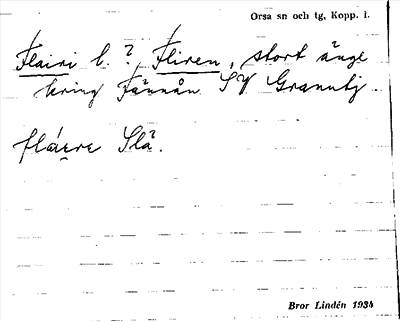 Orsa sn och tg, Kopp. l.
Flairi l. ? Fliren, stort änge
kring Fännån SV Grannbj
fláere Slä.
Bror Lindén 1934